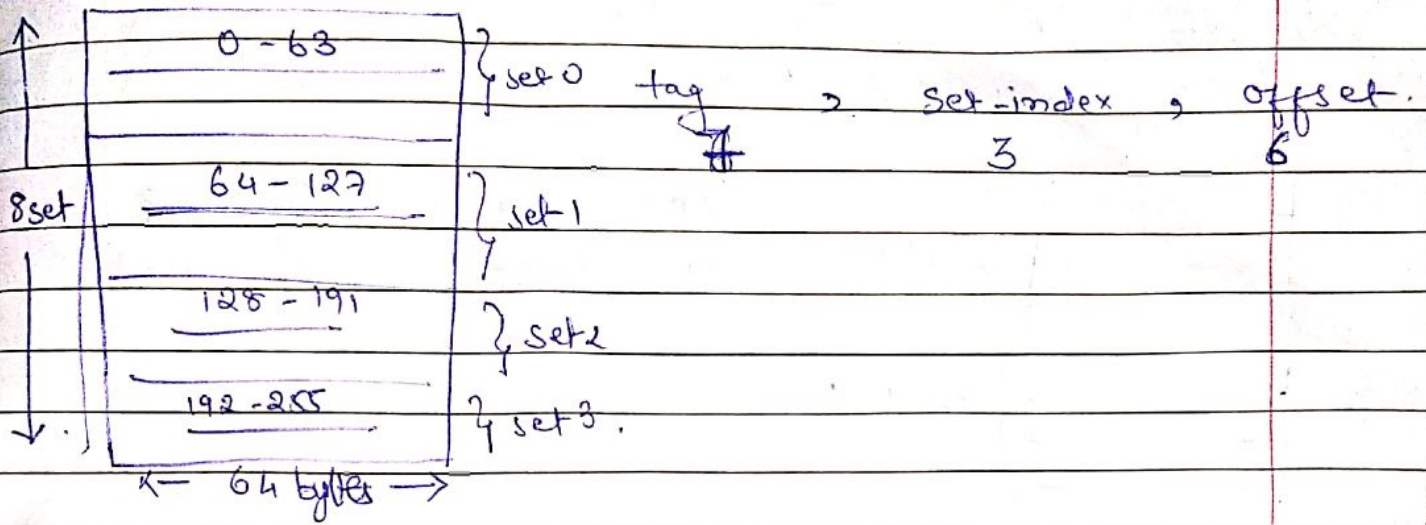 0 - 63
} set 0 tag , set-index , offset.
3 6
64 - 127
8 set } set 1
128 - 191
} set 2
192 - 255
} set 3 .
<- 64 bytes ->